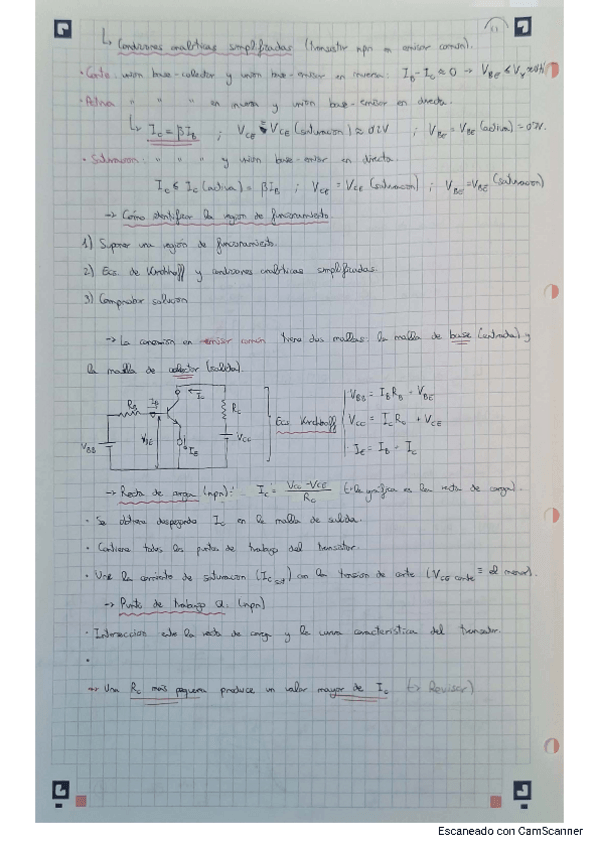 ↳ Condiciones analíticas simplificadas (transistor npn en emisor común).
· Corte: unión base-colector y unión base-emisor en inversa: I_B = I_C ≈ 0 → V_BE < V_γ
· Activa " " " en inversa y unión base-emisor en directa.
↳ I_C = βI_B ; V_CE ≥ V_CE (saturación) ≈ 0'2V ; V_BE = V_BE (activa) = 0'7V.
· Saturación: " " " y unión base-emisor en directa.
I_C ≤ I_C (activa) = βI_B ; V_CE = V_CE (saturación) ; V_BE = V_BE (saturación)
→ Cómo identificar la región de funcionamiento.
1) Suponer una región de funcionamiento.
2) Ecs. de Kirchhoff y condiciones analíticas simplificadas.
3) Comprobar solución
→ La conexión en emisor común tiene dos mallas: la malla de base (entrada) y
la malla de colector (salida).
R_B I_B I_C R_C V_BB V_BE I_E V_CC
Ecs Kirchhoff
V_BB = I_B R_B - V_BE
V_CC = I_C R_C + V_CE
I_E = I_B - I_C
→ Recta de carga (npn): I_C = V_CC - V_CE / R_C (la gráfica es la recta de carga).
· Se obtiene despejando I_C en la malla de salida.
· Contiene todos los puntos de trabajo del transistor.
· Une la corriente de saturación (I_C sat) con la tensión de corte (V_CE corte = el menor).
→ Punto de trabajo Q. (npn)
· Intersección entre la recta de carga y la curva característica del transistor.
·
→ Una R_C más pequeña produce un valor mayor de I_C (→ Revisar)
Escaneado con CamScanner